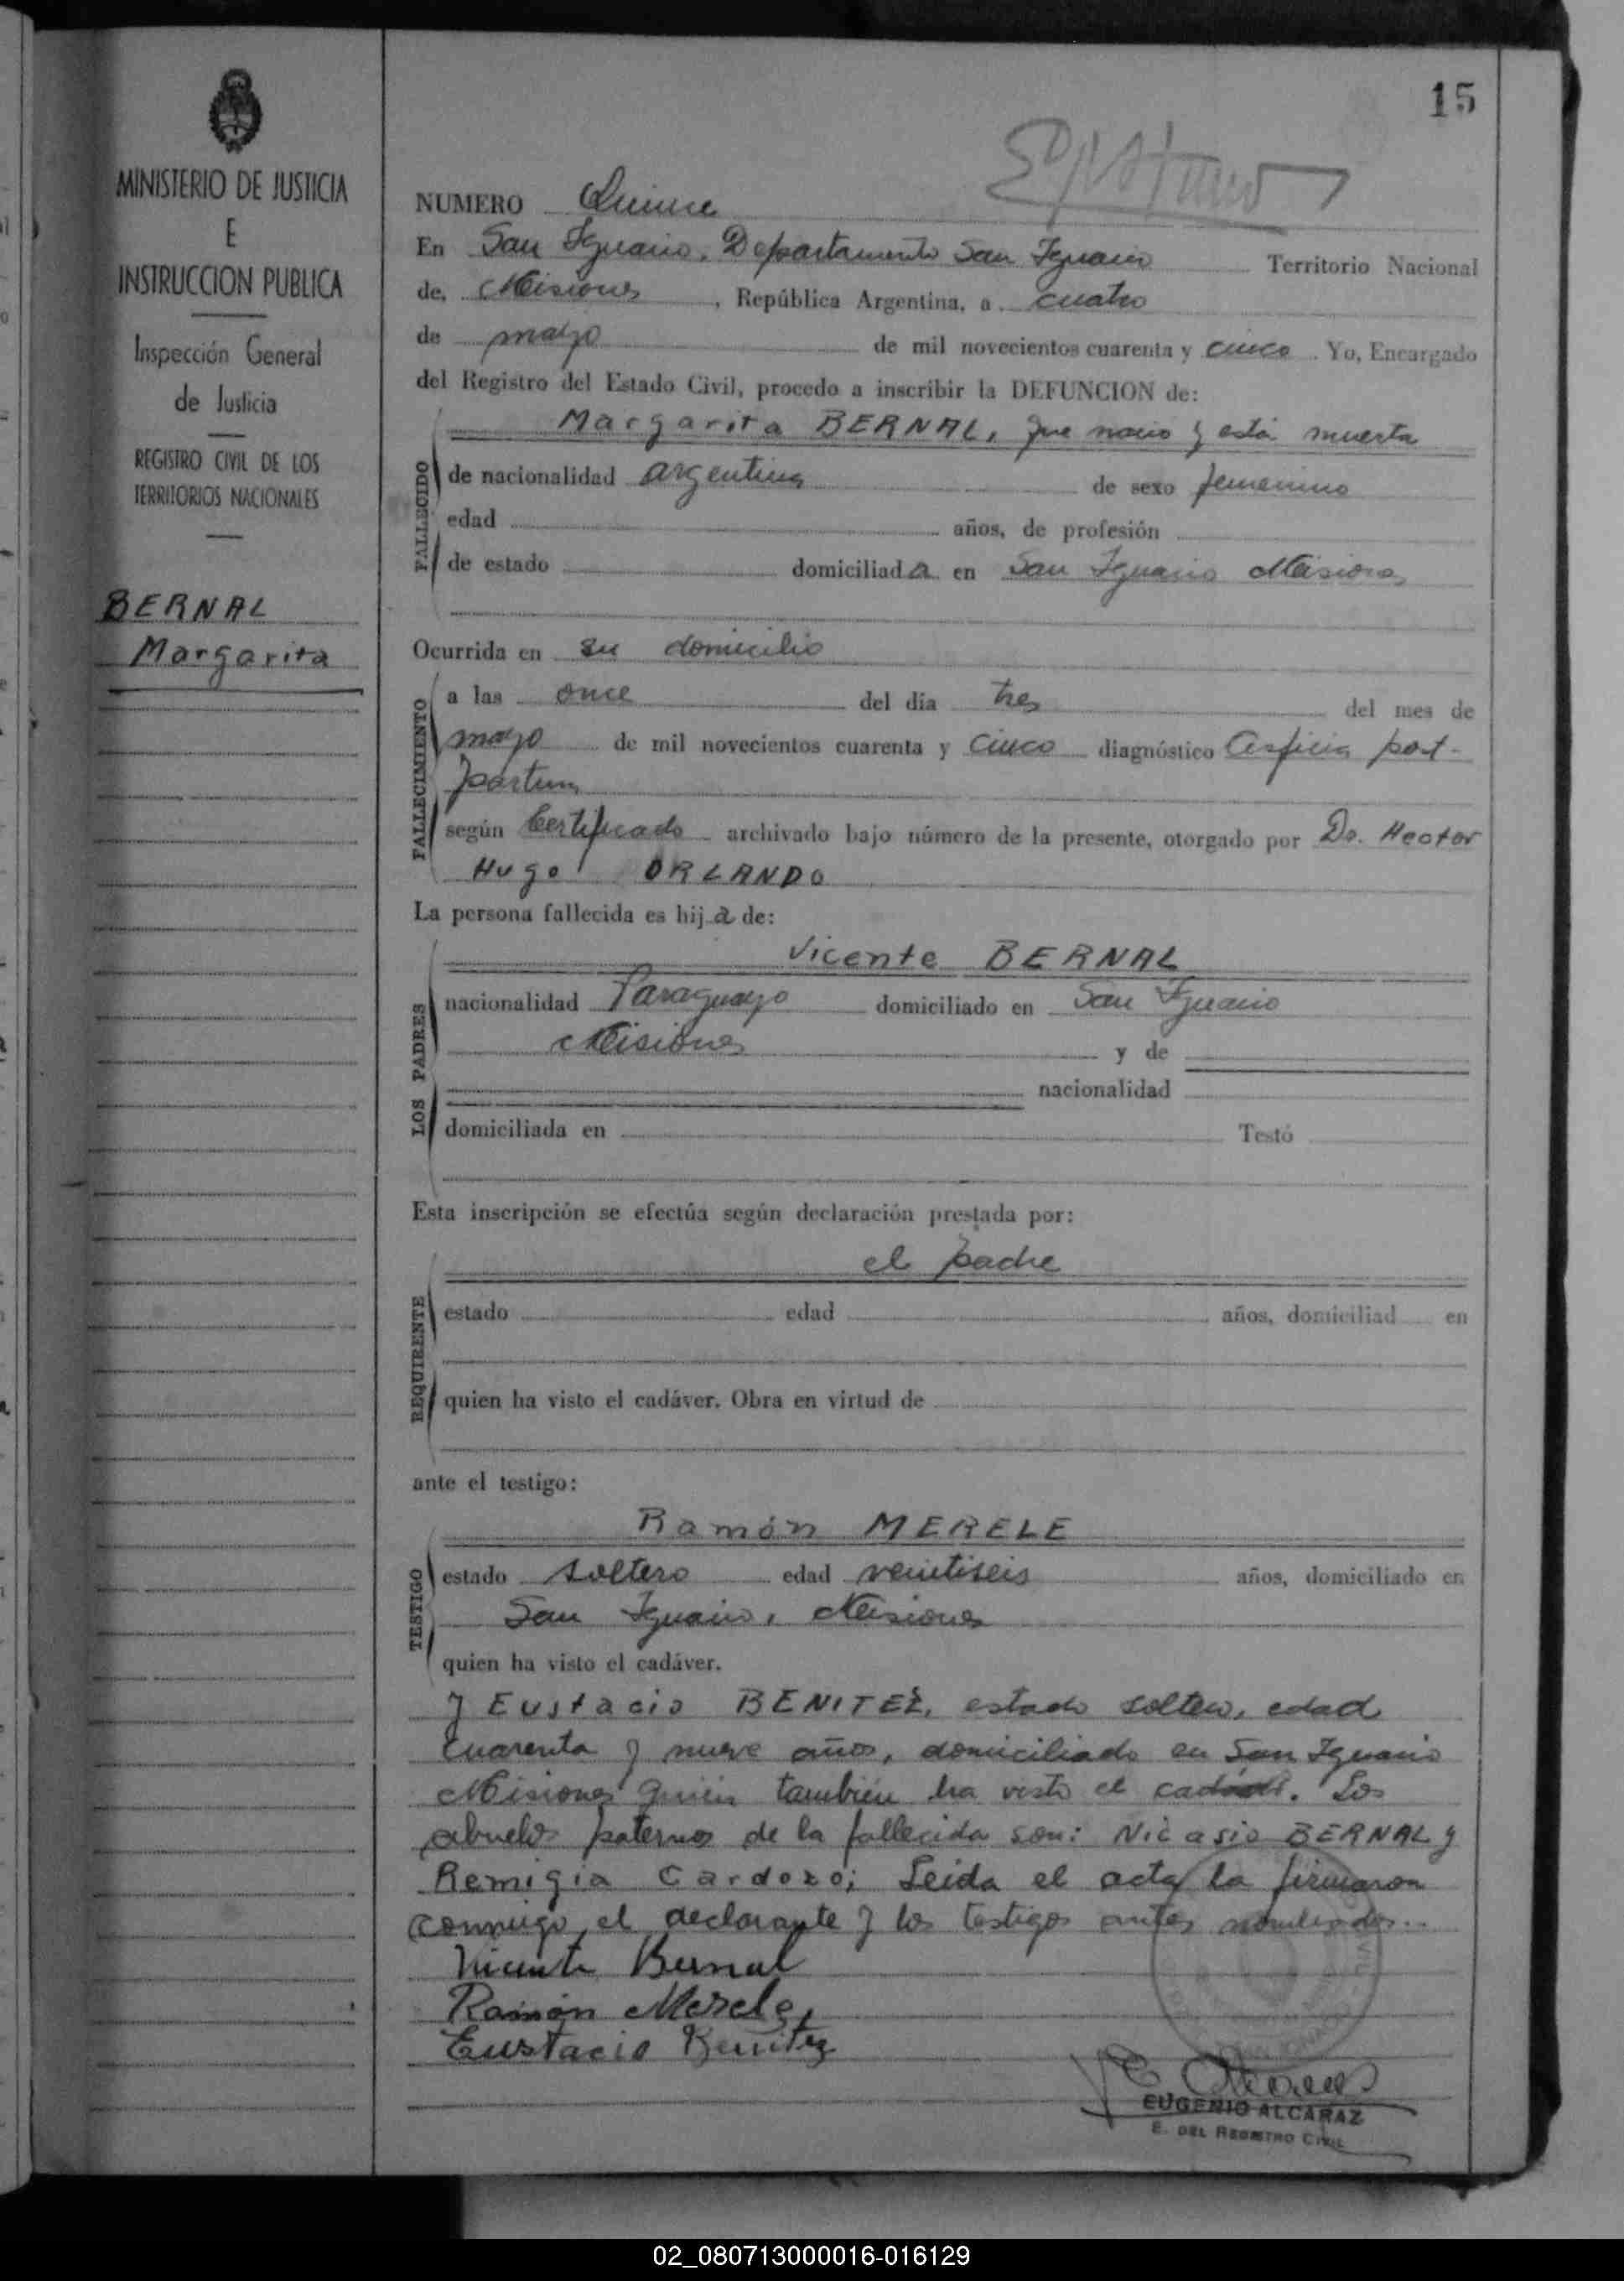 15
MINISTERIO DE JUSTICIA
E
INSTRUCCION PUBLICA
Inspección General
de Justicia
REGISTRO CIVIL DE LOS
TERRITORIOS NACIONALES
BERNAL
Margarita
NUMERO Quince
En San Ignacio, Departamento San Ignacio Territorio Nacional
de, Misiones, República Argentina, a cuatro
de mayo de mil novecientos cuarenta y cinco. Yo, Encargado
del Registro del Estado Civil, procedo a inscribir la DEFUNCION de:
Margarita BERNAL, que nació y está muerta
FALLECIDO
de nacionalidad argentina de sexo femenino
edad años, de profesión
de estado domiciliada en San Ignacio Misiones
Ocurrida en su domicilio
FALLECIMIENTO
a las once del dia tres del mes de
mayo de mil novecientos cuarenta y cinco diagnóstico Asficia post-
partum
según Certificado archivado bajo número de la presente, otorgado por Dr. Hector
Hugo ORLANDO
La persona fallecida es hija de:
LOS PADRES
Vicente BERNAL
nacionalidad Paraguayo domiciliado en San Ignacio
Misiones y de
nacionalidad
domiciliada en Testó
Esta inscripción se efectúa según declaración prestada por:
REQUIRENTE
el padre
estado edad años, domiciliad en
quien ha visto el cadáver. Obra en virtud de
ante el testigo:
TESTIGO
Ramón MERELE
estado soltero edad veintiseis años, domiciliado en
San Ignacio, Misiones
quien ha visto el cadáver.
y Eustacio BENITEZ, estado soltero, edad
cuarenta y nueve años, domiciliado en San Ignacio
Misiones quien también ha visto el cadáver. Los
abuelos paternos de la fallecida son: Nicasio BERNAL y
Remigia Cardozo; Leida el acta la firmaron
conmigo, el declarante y los testigos antes nombrados..
Vicente Bernal
Ramón Merele
Eustacio Benitez
EUGENIO ALCARAZ
E. DEL REGISTRO CIVIL
02_080713000016-016129